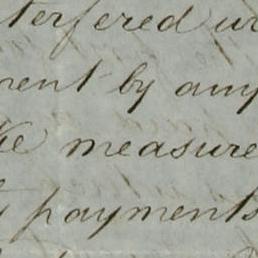 terfered w
ment by any
ke measure
payments